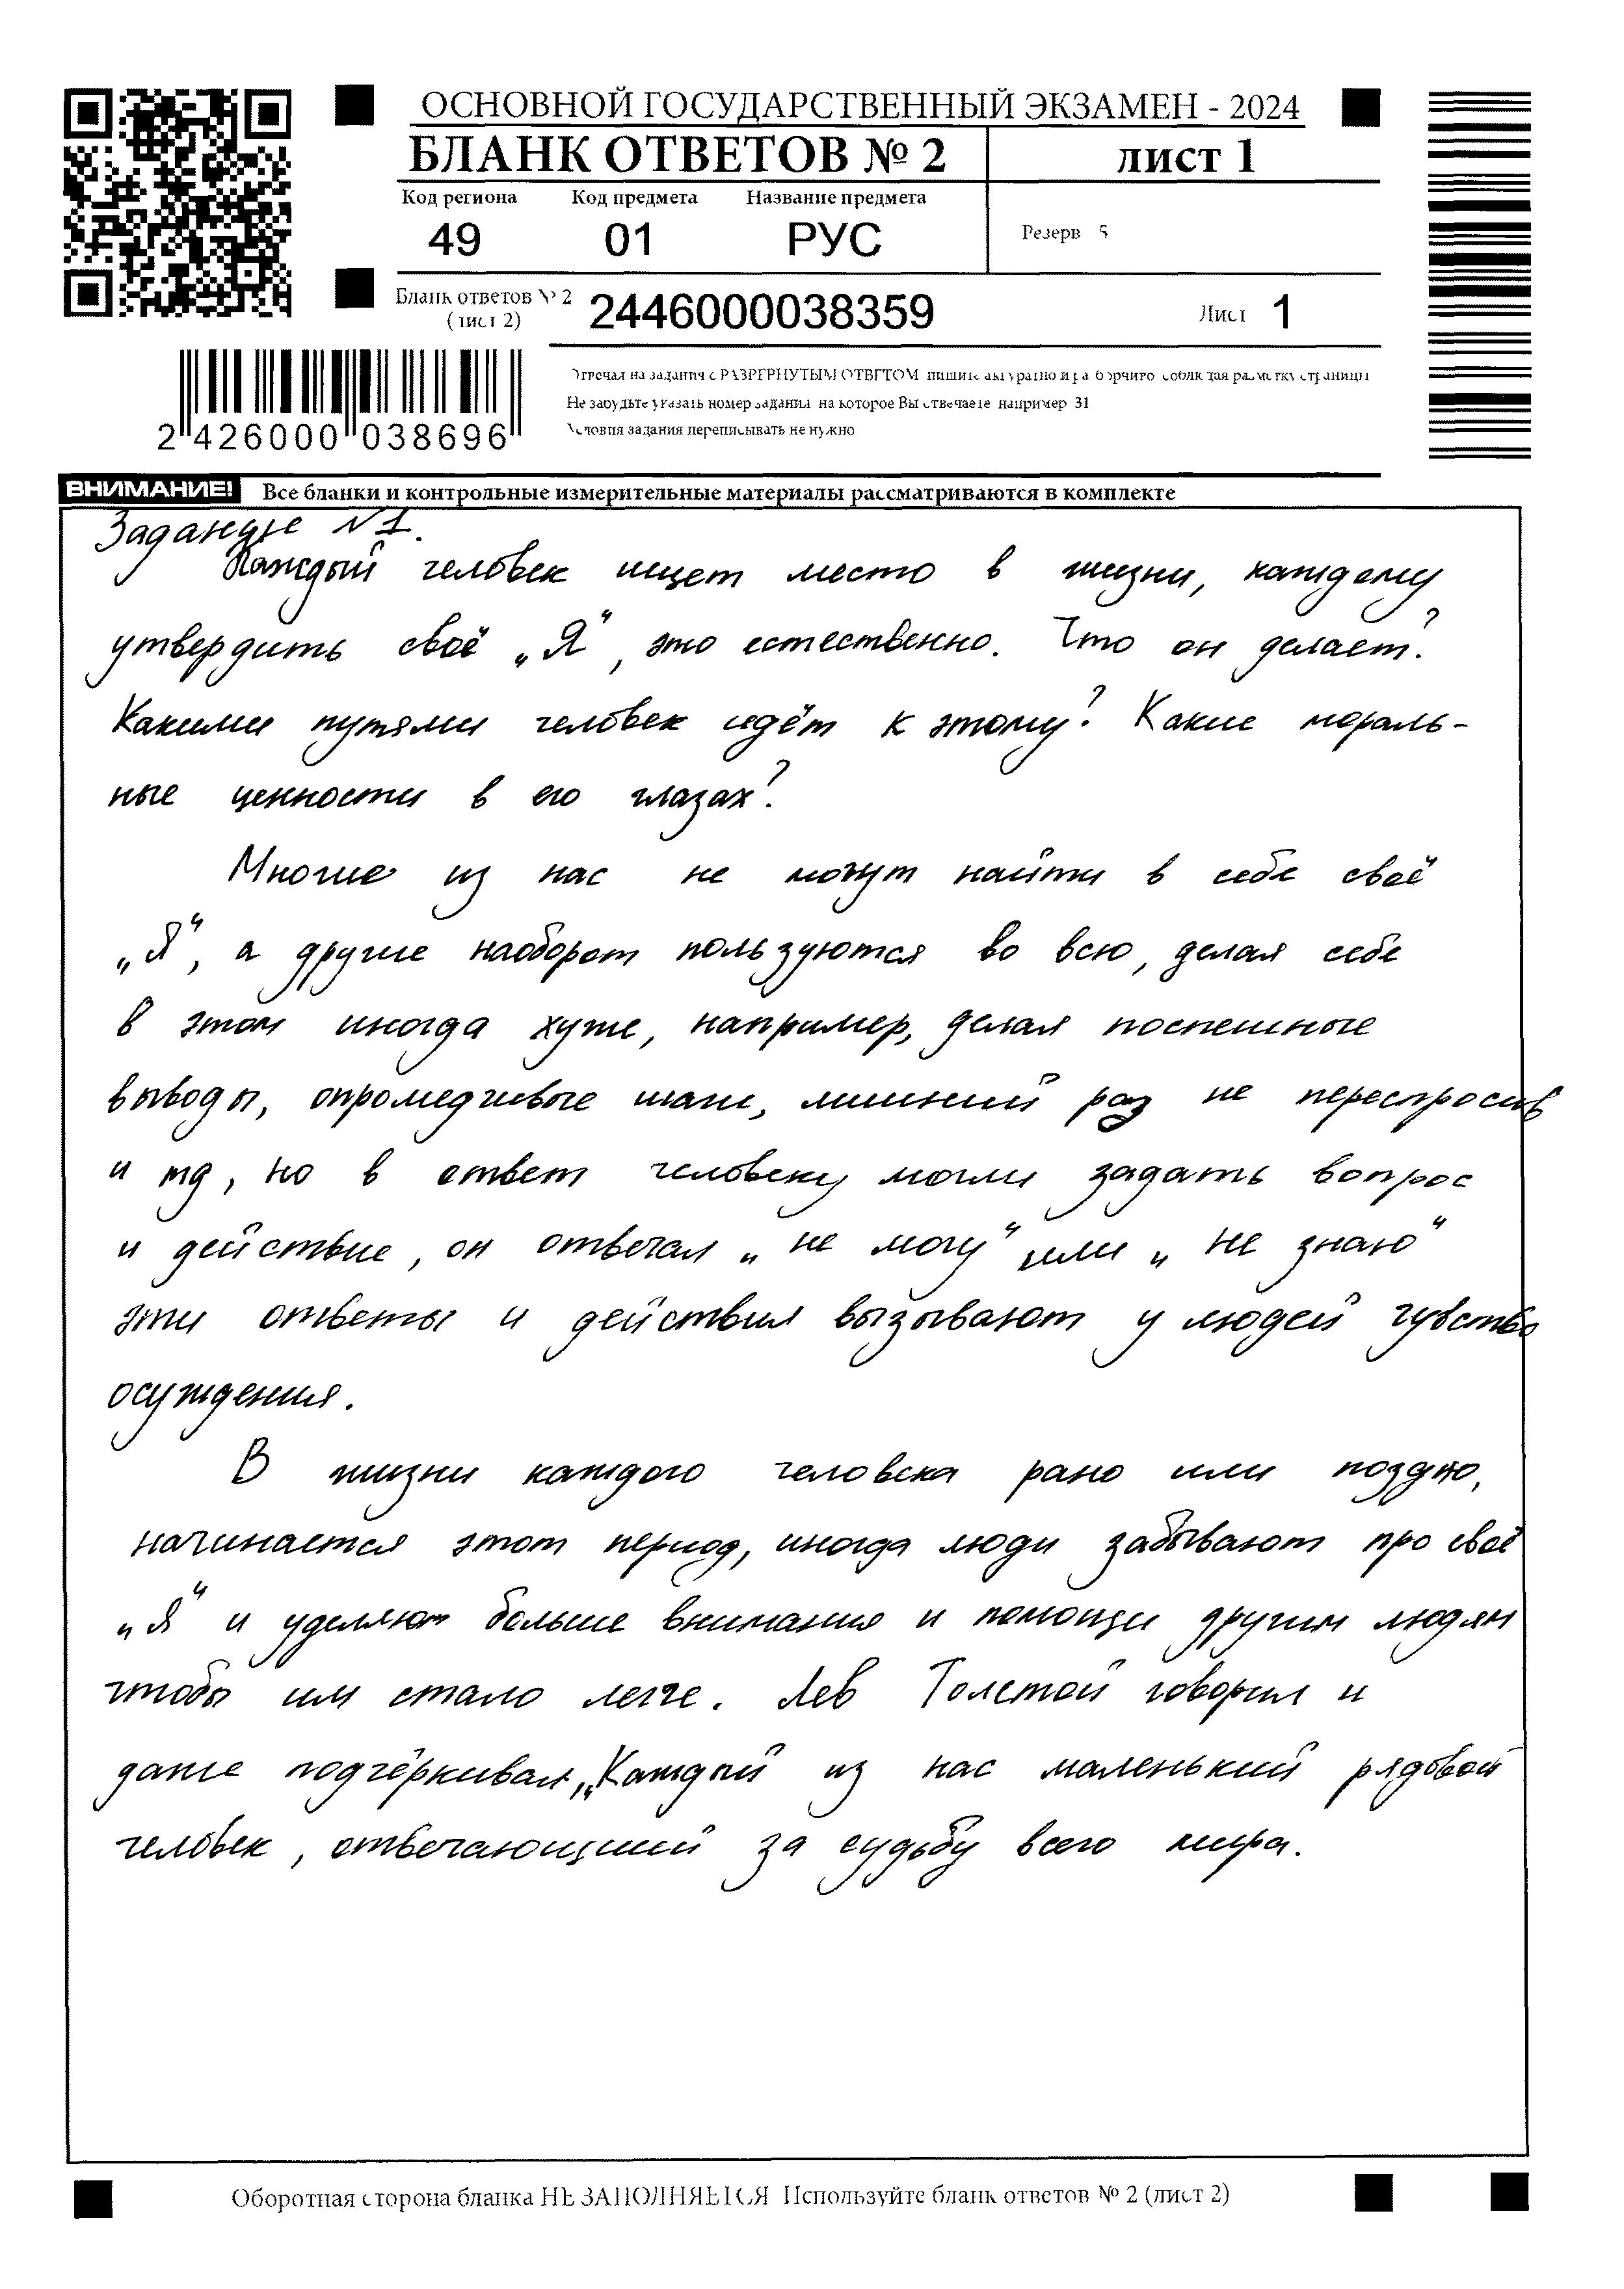 ОСНОВНОЙ ГОСУДАРСТВЕННЫЙ ЭКЗАМЕН - 2024
БЛАНК ОТВЕТОВ № 2 лист 1
Код региона Код предмета Название предмета
49 01 РУС
Резерв 5
Бланк ответов № 2
(лист 2) 2446000038359 Лист 1
2 426000 038696
Отвечая на задания с РАЗВЕРНУТЫМ ОТВЕТОМ пишите аккуратно и разборчиво соблюдая разметку страницы
Не забудьте указать номер задания на которое Вы отвечаете например 31
Условия задания переписывать не нужно
ВНИМАНИЕ! Все бланки и контрольные измерительные материалы рассматриваются в комплекте
Задание №1.
Каждый человек ищет место в жизни, каждому
утвердить своё „Я“, это естественно. Что он делает?
Какими путями человек идёт к этому? Какие мораль-
ные ценности в его глазах?
Многие из нас не могут найти в себе своё
„Я“, а другие наоборот пользуются во всю, делая себе
в этом иногда хуже, например, делая поспешные
выводы, опромедчивые шаги, лишний раз не переспросив
и тд, но в ответ человеку могли задать вопрос
и действие, он отвечал „не могу“ или „не знаю“
эти ответы и действия вызывают у людей чувство
осуждения.
В жизни каждого человека рано или поздно,
начинается этот период, иногда люди забывают про своё
„Я“ и уделяют больше внимания и помощи другим людям
чтобы им стало легче. Лев Толстой говорил и
даже подчёркивал, „Каждый из нас маленький рядовой
человек, отвечающий за судьбу всего мира.
Оборотная сторона бланка НЕ ЗАПОЛНЯЕТСЯ Используйте бланк ответов № 2 (лист 2)